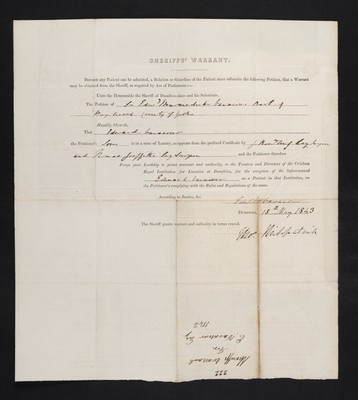 SHERIFFS' WARRANT.
BEFORE any Patient can be admitted, a Relation or Guardian of the Patient must subscribe the following Petition, that a Warrant
may be obtained from the Sheriff, as required by Act of Parliament:—
Unto the Honourable the Sheriff of Dumfries-shire and his Substitute,
The Petition of Sir
county of York
Humbly Sheweth,
That Edward
the Petitioner's Son is in a state of Lunacy, as appears from the prefixed Certificate by
and Thomas Surgeon and the Petitioner therefore
Prays your Lordship to grant warrant and authority to the Trustees and Directors of the Crichton
Royal Institution for Lunatics at Dumfries, for the reception of the beforenamed
Edward as a Patient in that Institution, on
the Petitioner's complying with the Rules and Regulations of the same.
According to Justice, &c.
DUMFRIES, 18th May 1843
The Sheriff grants warrant and authority in terms craved.
Kirkpatrick
222
Sheriffs Warrant
for
E. Esq
1843